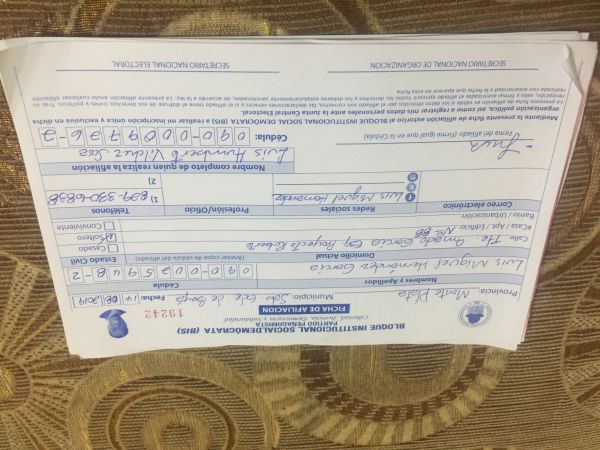 BLOQUE INSTITUCIONAL SOCIALDEMÓCRATA (BIS)
PARTIDO PEÑAGOMISTA
Libertad, Justicia, Democracia y Solidaridad
FICHA DE AFILIACIÓN
19242
Provincia: Monte Plata Municipio: Sab. Gde de Boyá Fecha: 14 08 2019
Nombres y Apellidos Cédula
Luis Miguel Hernández García 090-0025948-2
(Anexar copia de cédula del afiliado)
Domicilio Actual Estado Civil
Calle: Amado García Esq Proyecto Casado
#Casa / Apt. / Edificio: No. 88 Soltero
Barrio / Urbanización: Conviviente
Correo electrónico Redes sociales Profesión/Oficio Teléfonos
Luis Miguel Hernandez 1) 829-330-6838
2)
Nombre completo de quien realiza la afiliación
Luis Humberto Vilchez Cédula: 090-0009726-2
Firma del afiliado (Firmar igual que en la Cédula)
Mediante la presente ficha de afiliación autorizo al BLOQUE INSTITUCIONAL SOCIAL DEMÓCRATA (BIS) a realizar mi inscripción única y exclusiva en dicha
organización política, así como a registrar mis datos personales ante la Junta Central Electoral.
SECRETARIO DE ORGANIZACIÓN SECRETARIO NACIONAL ELECTORAL